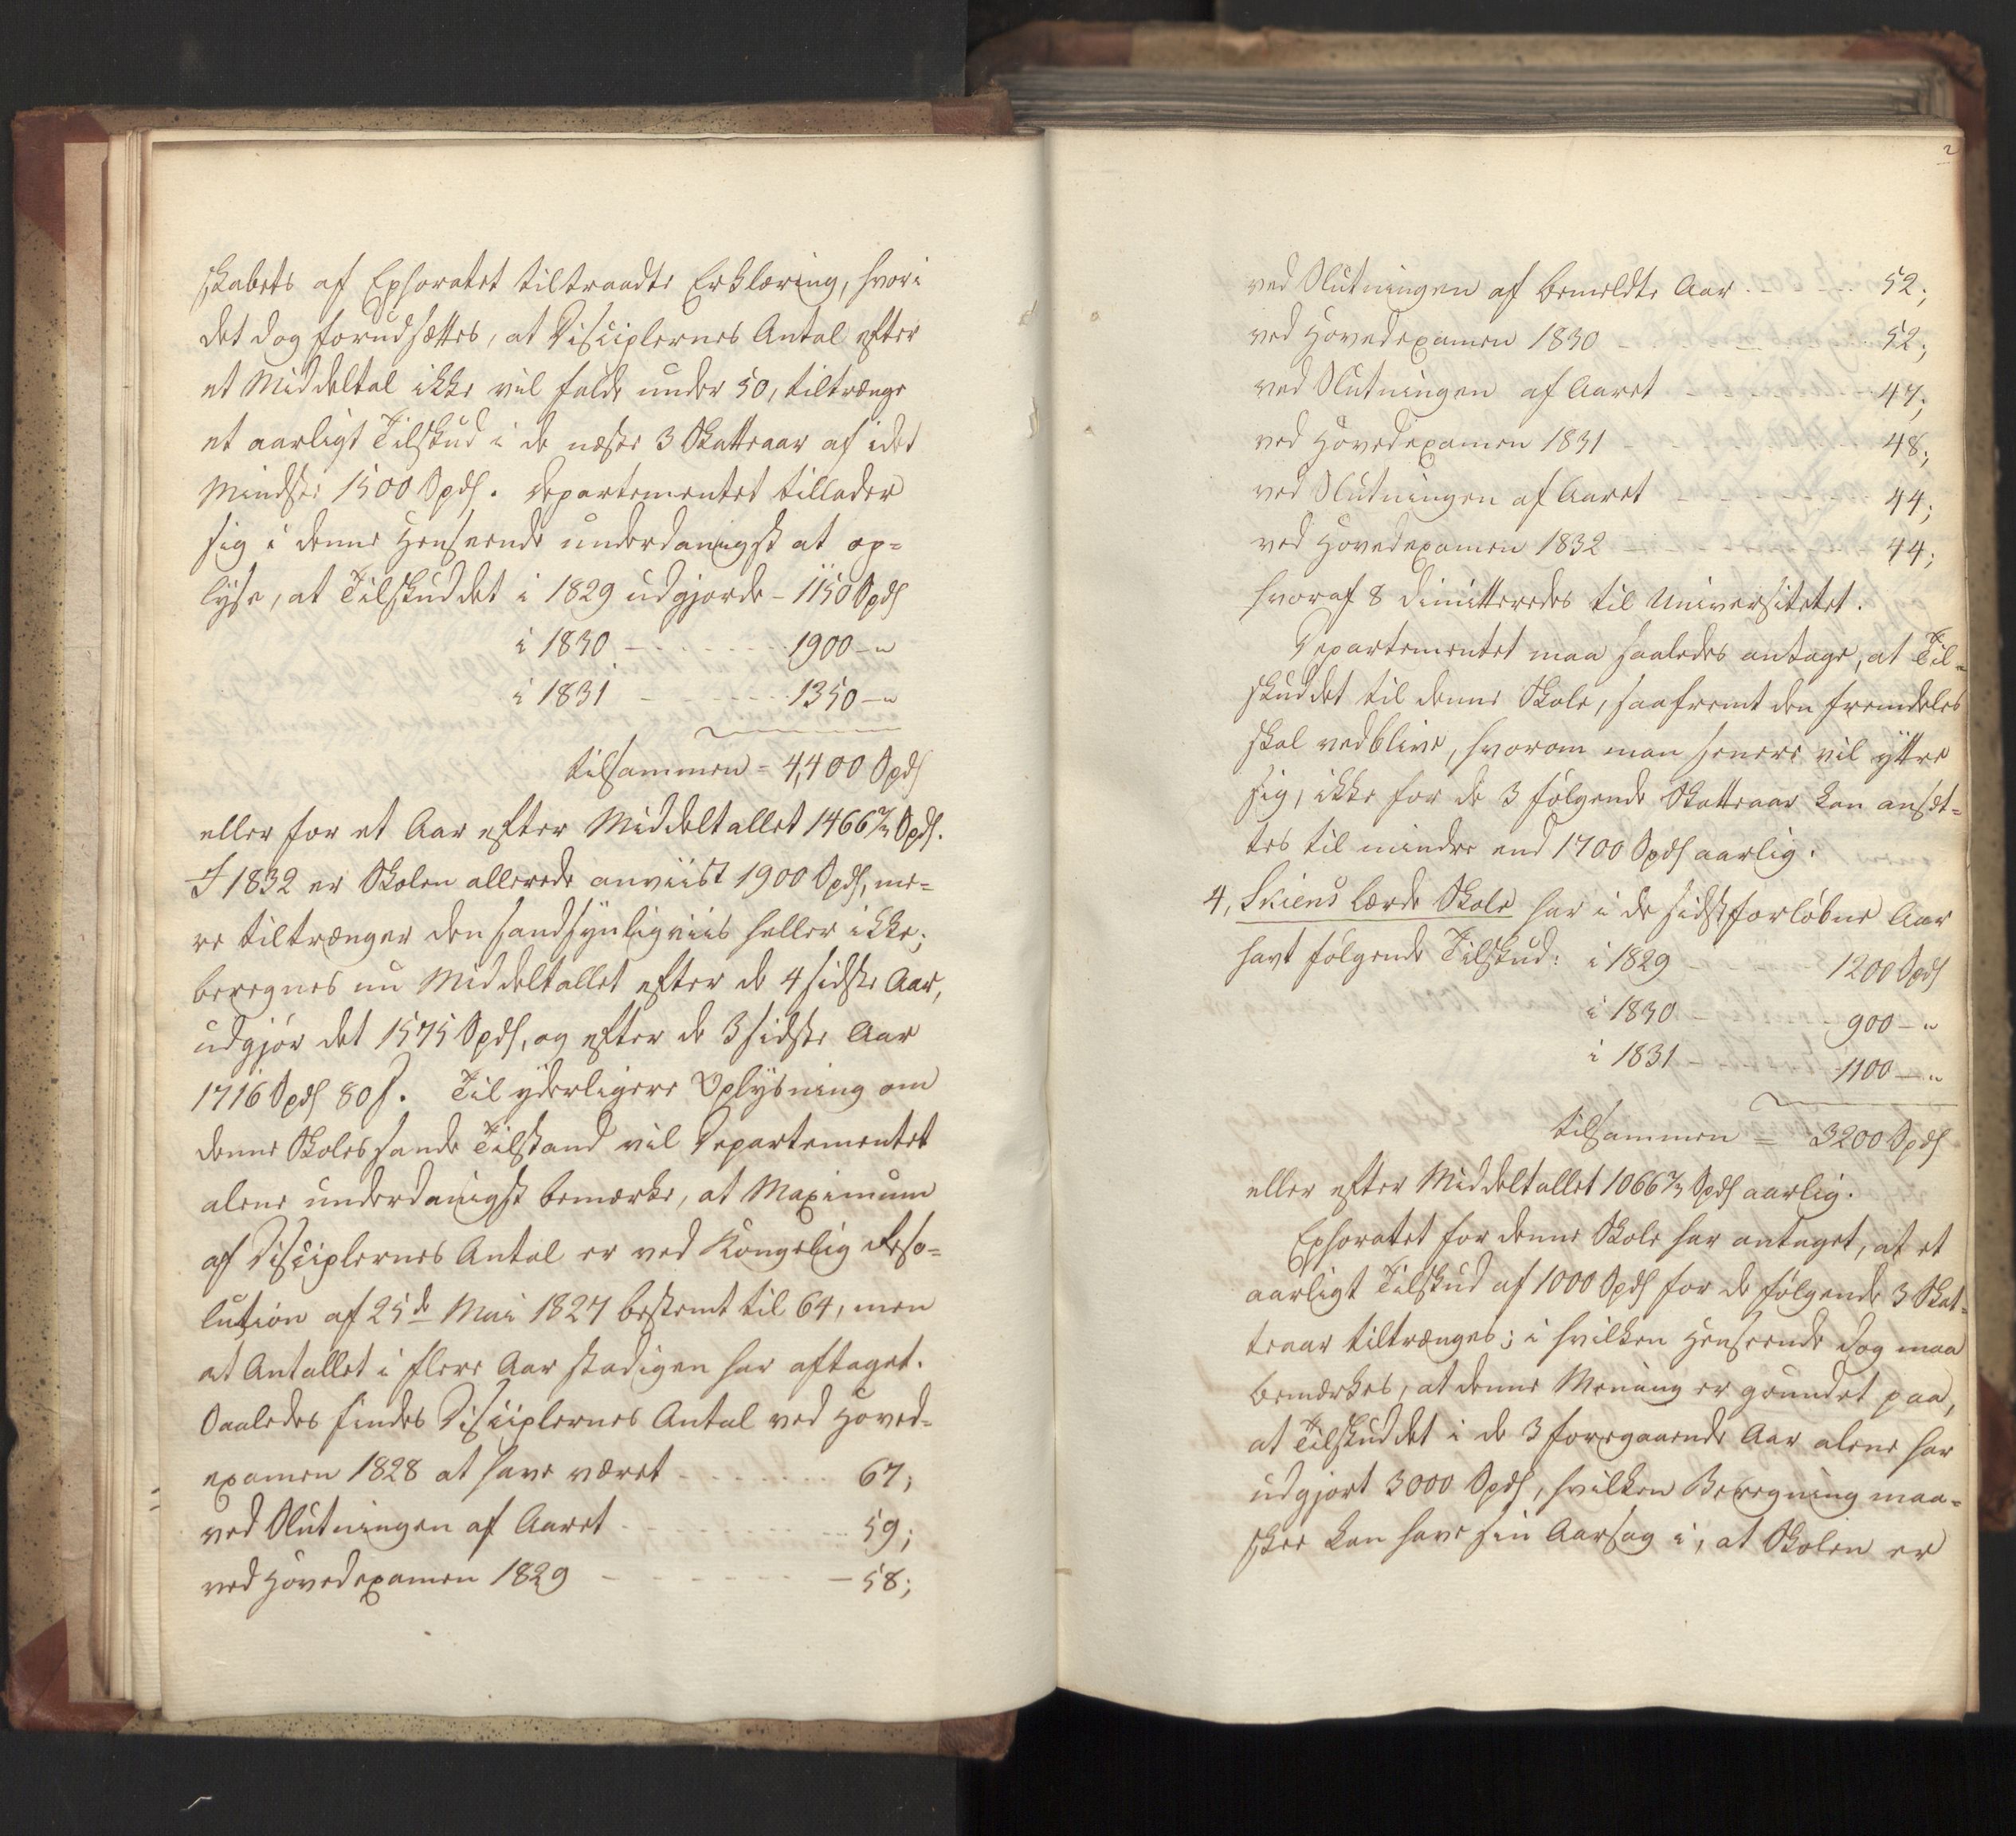 skabets af Ephoratet tiltraadte Erklæring, hvori
det dog forudsættes, at Disciplernes Antal efter
et Middeltal ikke vil falde under 50, tiltrænge
et aarligt Tilskud i de næste 3 Skatteaar af idet
Mindste 1500 Spds. Departementet tillader
sig i denne Henseende underdanigst at op-
lyse, at Tilskuddet i 1829 udgjorde - 1150 Spds
i 1830 - - - - - - 1900 - "
i 1831 - - - - - - 1350 - "
tilsammen = 4,400 Spds
eller for et Aar efter Middeltallet 1466 2/3 Spds.
I 1832 er Skolen allerede anviist 1900 Spds, me-
re tiltrænger den sandsynligviis heller ikke;
beregnes nu Middeltallet efter de 4 sidste Aar,
udgjør det 1575 Spds, og efter de 3 sidste Aar
1716 Spds 80 s. Til yderligere Oplysning om
denne Skoles sande Tilstand vil Departementet
alene underdanigst bemærke, at Maximum
af Disciplernes Antal er ved Kongelig Reso-
lution af 25de Mai 1827 bestemt til 64, men
at Antallet i flere Aar stadigen har aftaget.
Saaledes findes Disciplernes Antal ved Hoved-
examen 1828 at have været - - - - - - 67;
ved Slutningen af Aaret - - - - - - 59;
ved Hovedexamen 1829 - - - - - - 58;
2
ved Slutningen af bemeldte Aar - - - 52;
ved Hovedexamen 1830 - - - - - 52;
ved Slutningen af Aaret - - - - - 47;
ved Hovedexamen 1831 - - - - - 48;
ved Slutningen af Aaret - - - - - 44;
ved Hovedexamen 1832 - - - - - 44;
hvoraf 8 dimitteredes til Universitetet.
Departementet maa saaledes antage, at Til-
skuddet til denne Skole, saafremt den fremdeles
skal vedblive, hvorom man senere vil yttre
sig, ikke for de 3 følgende Skatteaar kan ansæt-
tes til mindre end 1700 Spds aarlig.
4, Skiens lærde Skole har i de sidstforløbne Aar
havt følgende Tilskud: i 1829 - - - 1200 Spds
i 1830 - - - 900 - "
i 1831 - - - 1100 - "
tilsammen = 3200 Spds
eller efter Middeltallet 1066 2/3 Spds aarlig.
Ephoratet for denne Skole har antaget, at et
aarligt Tilskud af 1000 Spds for de følgende 3 Skat-
teaar tiltrænges; i hvilken Henseende dog maa
bemærkes, at denne Mening er grundet paa,
at Tilskuddet i de 3 foregaaende Aar alene har
udgjort 3000 Spds, hvilken Beregning maa-
skee kan have sin Aarsag i, at Skolen er